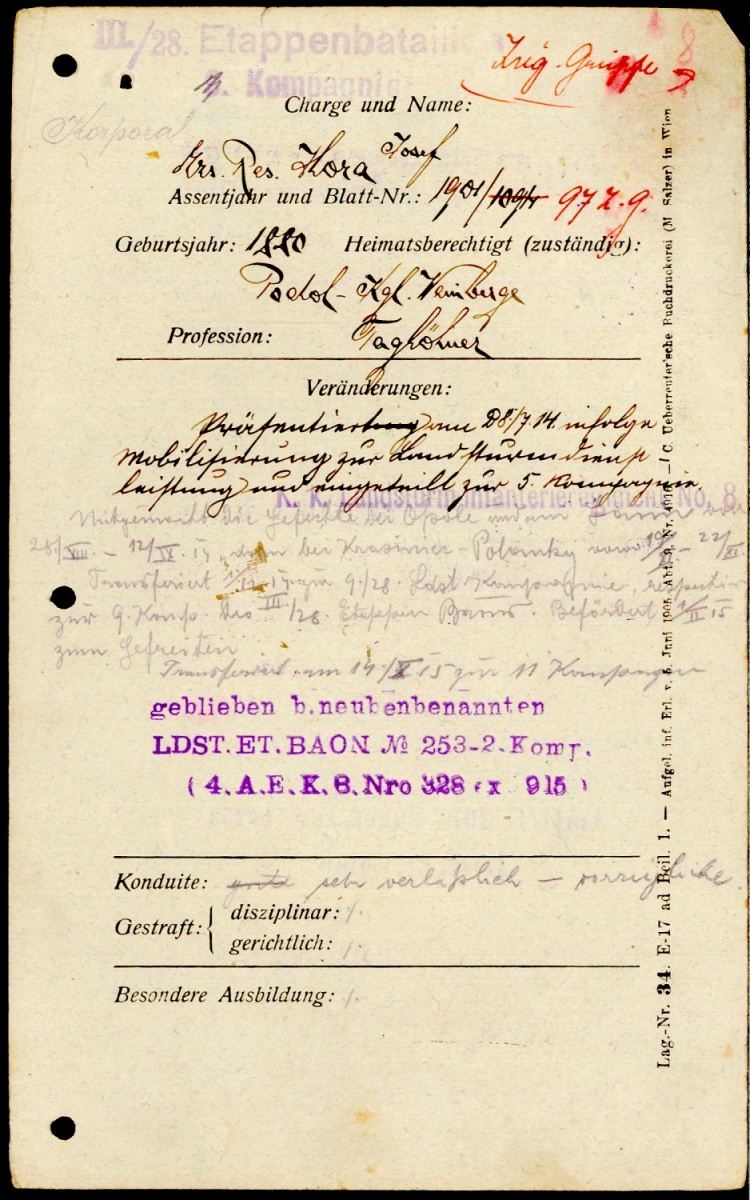 III./28. Etappenbataillon
9. Kompagnie
Korporal
Charge und Name:
Josef
Res. Hora
Assentjahr und Blatt-Nr.: 1901/ 97 Z. g.
Geburtsjahr: 1880 Heimatsberechtigt (zuständig):
Podol - Kgl. Weinberge
Profession: Taglöhner
Veränderungen:
Präsentiert am 28./7. 14. infolge
Mobilisierung zur Landsturmdienst
leistung und eingeteilt zur 5. Kompagnie.
K. k. Landsturminfanterieregiment No. 8.
Mitgemacht die Gefechte bei Opole und am
28/VIII. - 12/IX. 14, dann bei Krasnica - Polanky vom - 22/XI.
Transferiert zur 9./28. Ldst. Kompagnie, respektive
zur 9. Komp. des III/28. Etappen Baons. Befördert 1/II 15
zum Gefreiten.
Transferiert am 14/X 15 zur 11 Kompagnie
geblieben b.neubenbenannten
LDST. ET. BAON № 253-2. Komp.
( 4. A. E. K. 8. Nro 328 x 915 )
Konduite: gute sehr verläßlich - vorzügliche.
Gestraft: { disziplinar: ·/.
gerichtlich: ·/.
Besondere Ausbildung: ·/.
Lag.-Nr. 34. E-17 ad Beil. 1. — Aufgel. inf. Erl. v. 5. Juni 1905, Abt. 2, Nr. — (C. Ueberreuter'sche Buchdruckerei (M. Salzer) in Wien